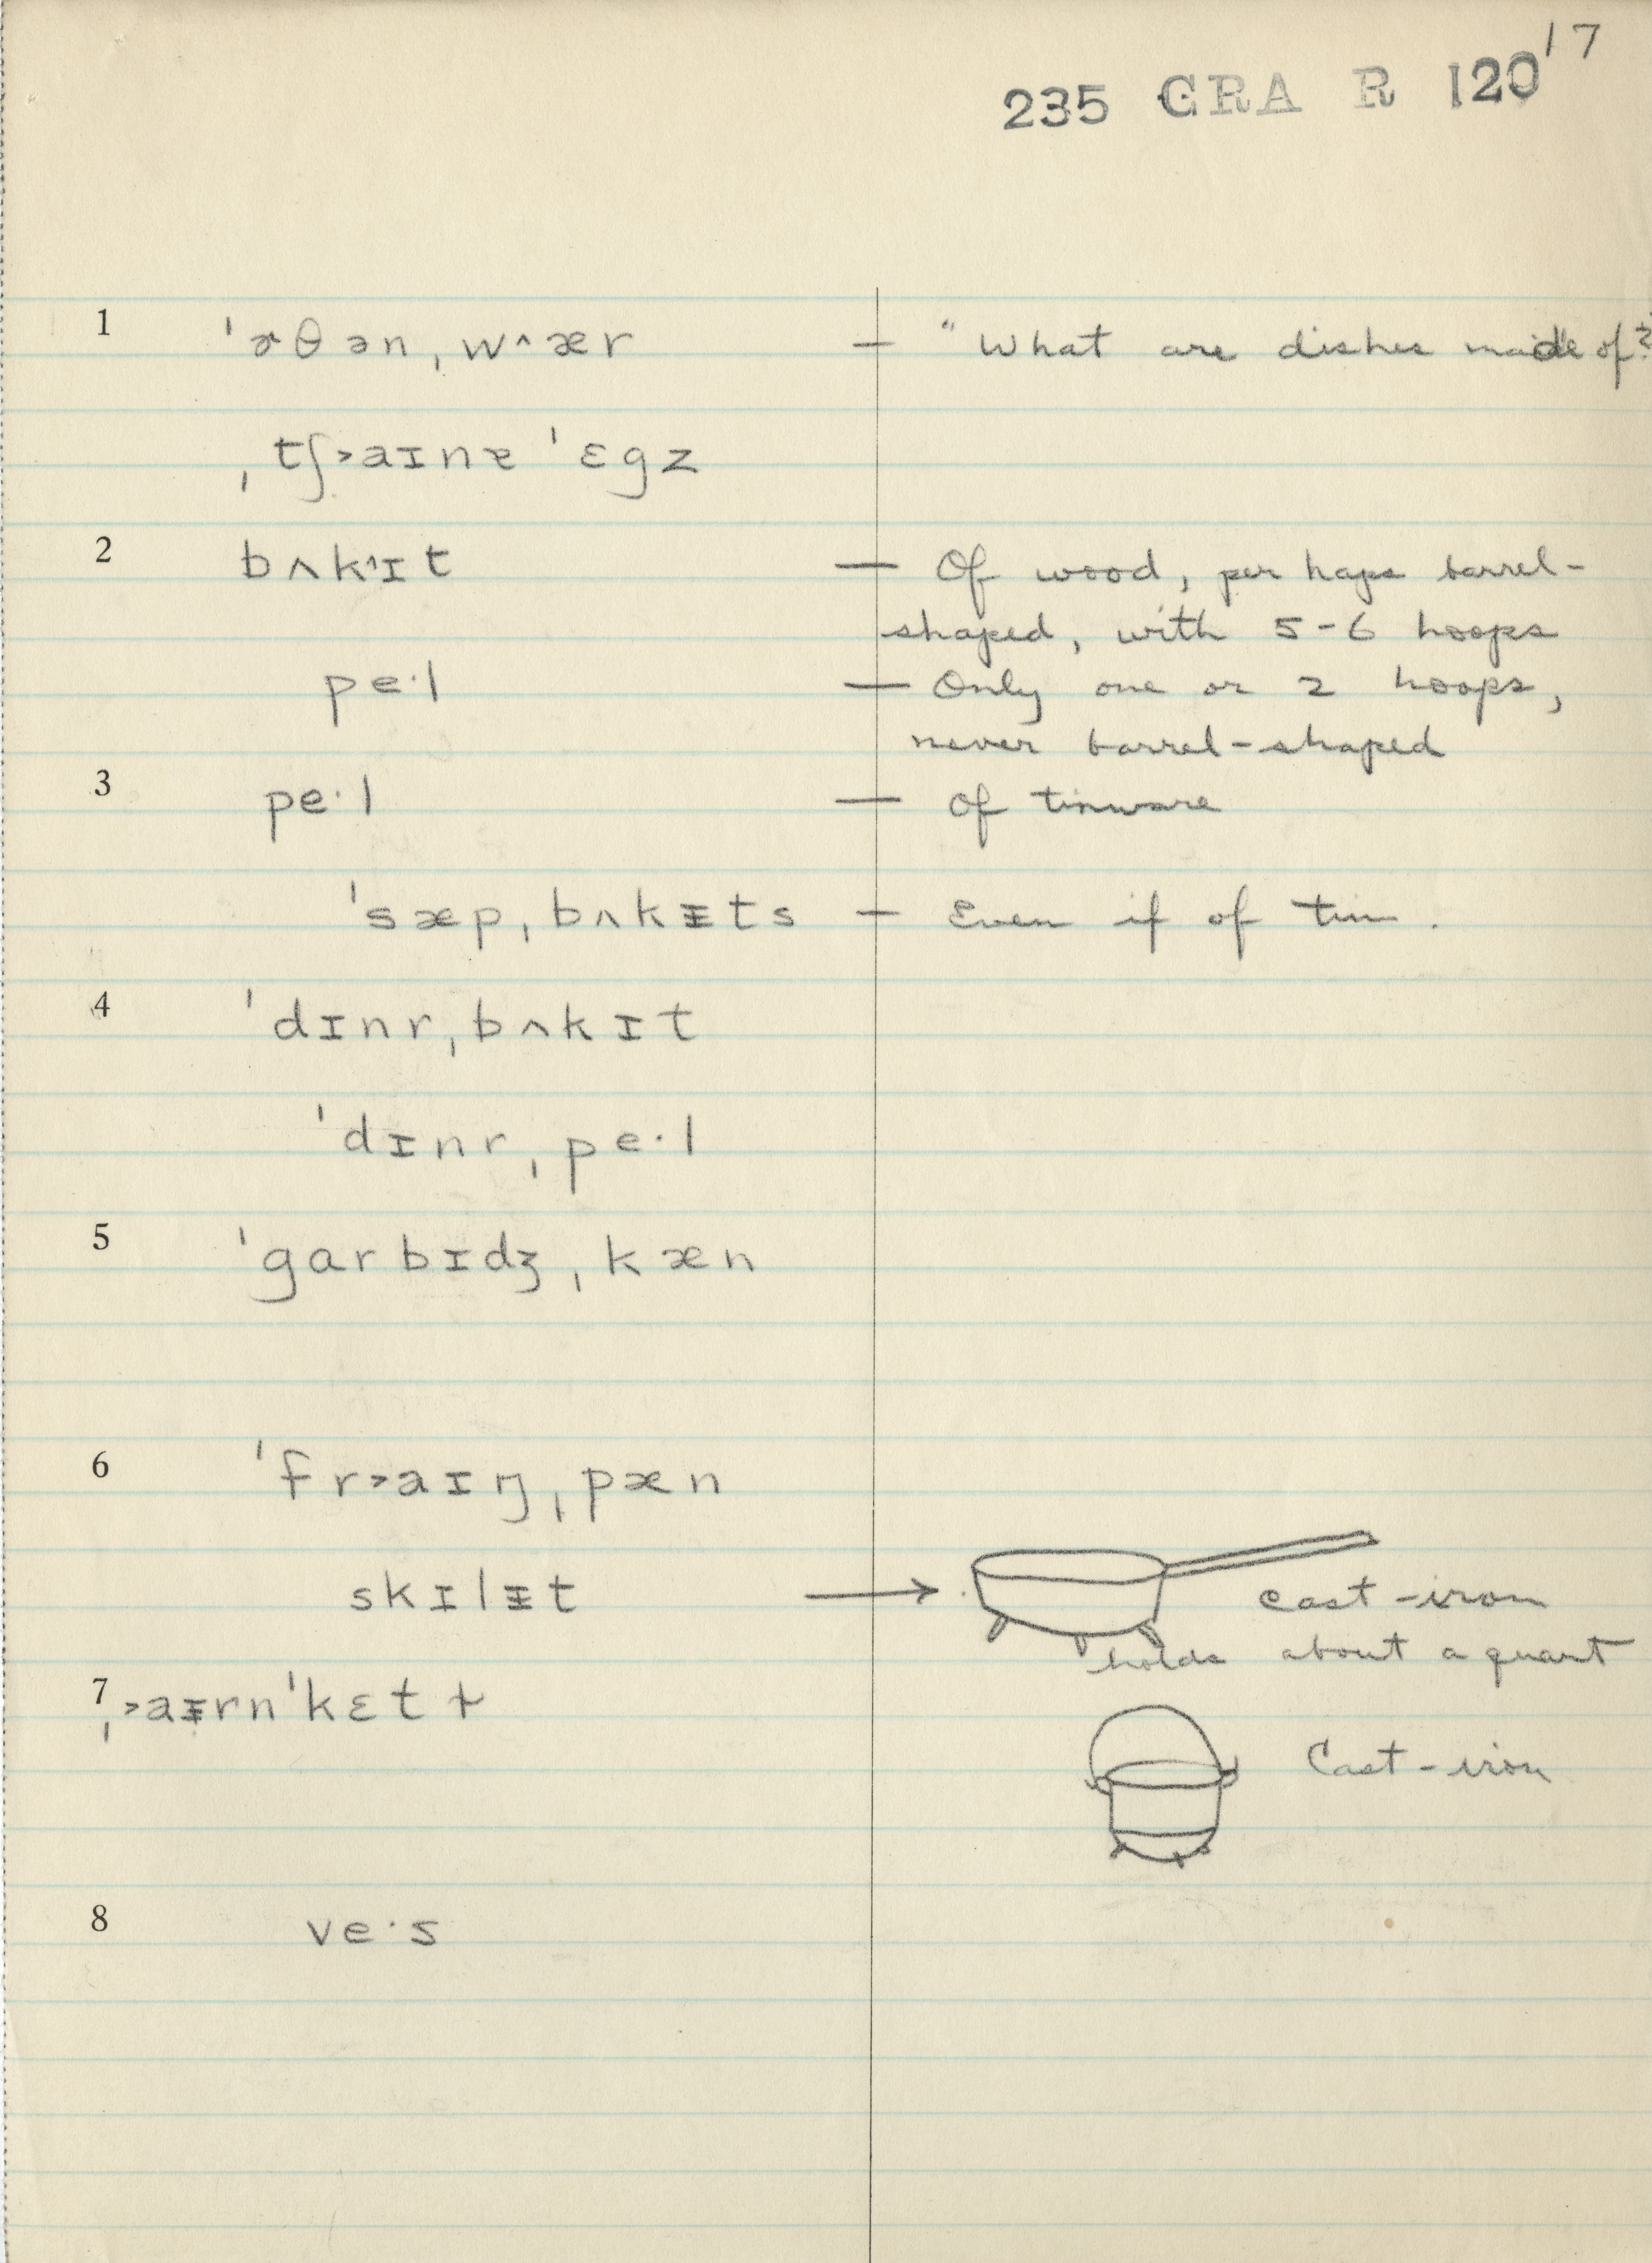 17
235 GRA R 120
1 ˈɚθən ˌw^ær — "What are dishes made of?"
ˌtʃ˃aɪnɐ ˈɛgz
2 bʌk^ɪt — Of wood, perhaps barrel-
shaped, with 5-6 hoops
pe·l — Only one or 2 hoops,
never barrel-shaped
3 pe·l — Of tinware
ˈsæp ˌbʌkᵻts — Even if of tin.
4 ˈdɪnr ˌbʌkɪt
ˈdɪnr ˌpe·l
5 ˈgarbɪdʒ ˌkæn
6 ˈfr˃aɪŋ ˌpæn
skɪlᵻt → cast-iron
holds about a quart
7 ˌ˃aᵻrn ˈkɛtɫ
Cast-iron
8 ve·s